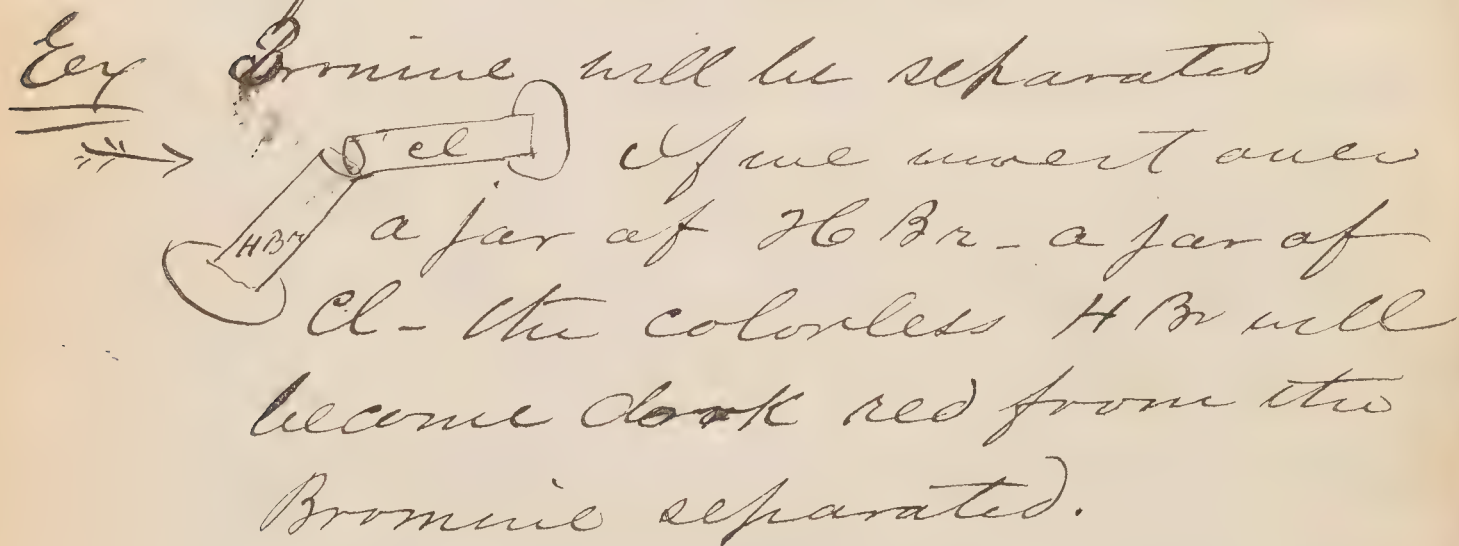 Ex Bromine will be separated
Cl If we invert over
HBr a jar of H Br - a jar of
Cl - the colorless H Br will
become dark red from the
Bromine separated.